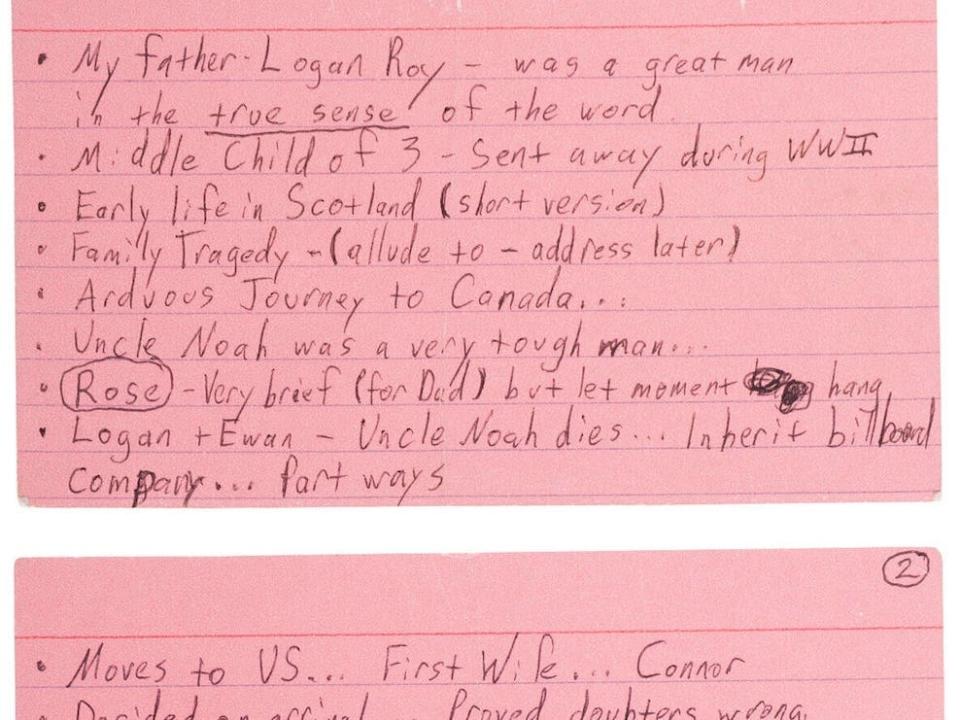 • My father - Logan Roy - was a great man
in the true sense of the word.
• Middle Child of 3 - Sent away during WWII
• Early life in Scotland (short version)
• Family Tragedy - (allude to - address later)
• Arduous Journey to Canada...
• Uncle Noah was a very tough man...
• Rose - Very brief (for Dad) but let moment hang
• Logan + Ewan - Uncle Noah dies... Inherit billboard
company... Part ways
2
• Moves to US... First Wife... Connor
• Decided on arrival... Proved doubters wrong.